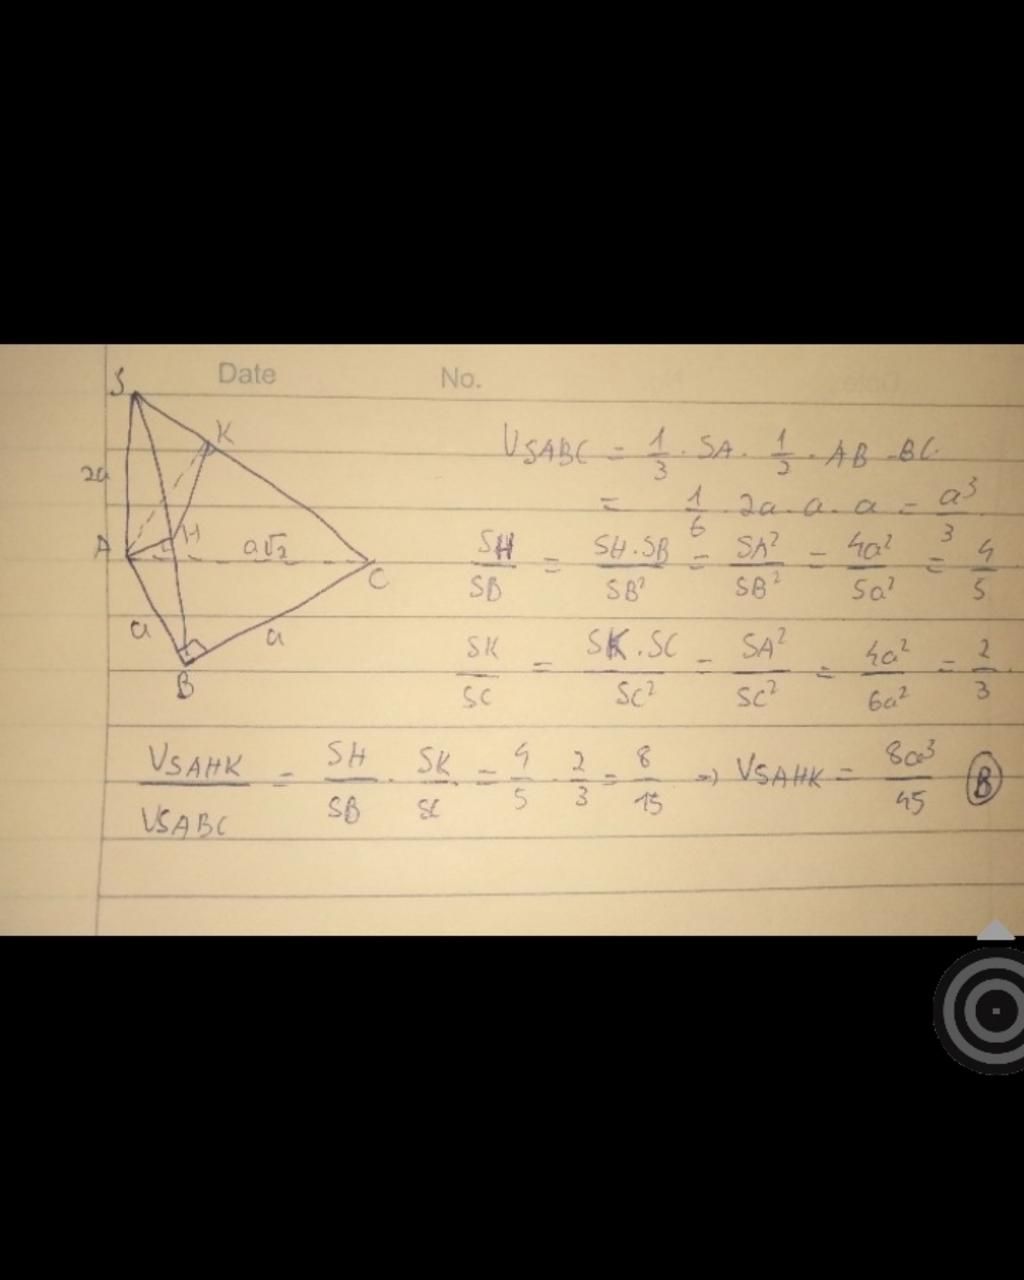 Date No.
S
K
2a
A
H
a√2
C
a
a
B
V_SABC = 1/3 · SA · 1/2 · AB · BC
= 1/6 · 2a · a · a = a³/3
SH/SB = SH.SB/SB² = SA²/SB² = 4a²/5a² = 4/5
SK/SC = SK.SC/SC² = SA²/SC² = 4a²/6a² = 2/3
V_SAHK/V_SABC = SH/SB · SK/SC = 4/5 · 2/3 = 8/15 => V_SAHK = 8a³/45 B